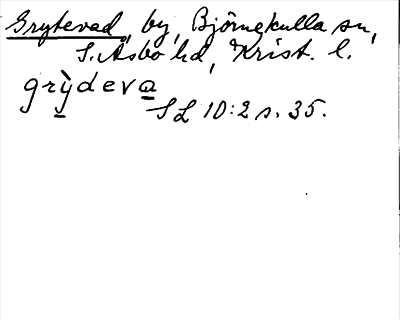 Grytevad, by, Björnekulla sn,
S. Åsbo hd, Krist. l.
grỳdeva
SL 10:2 s. 35.